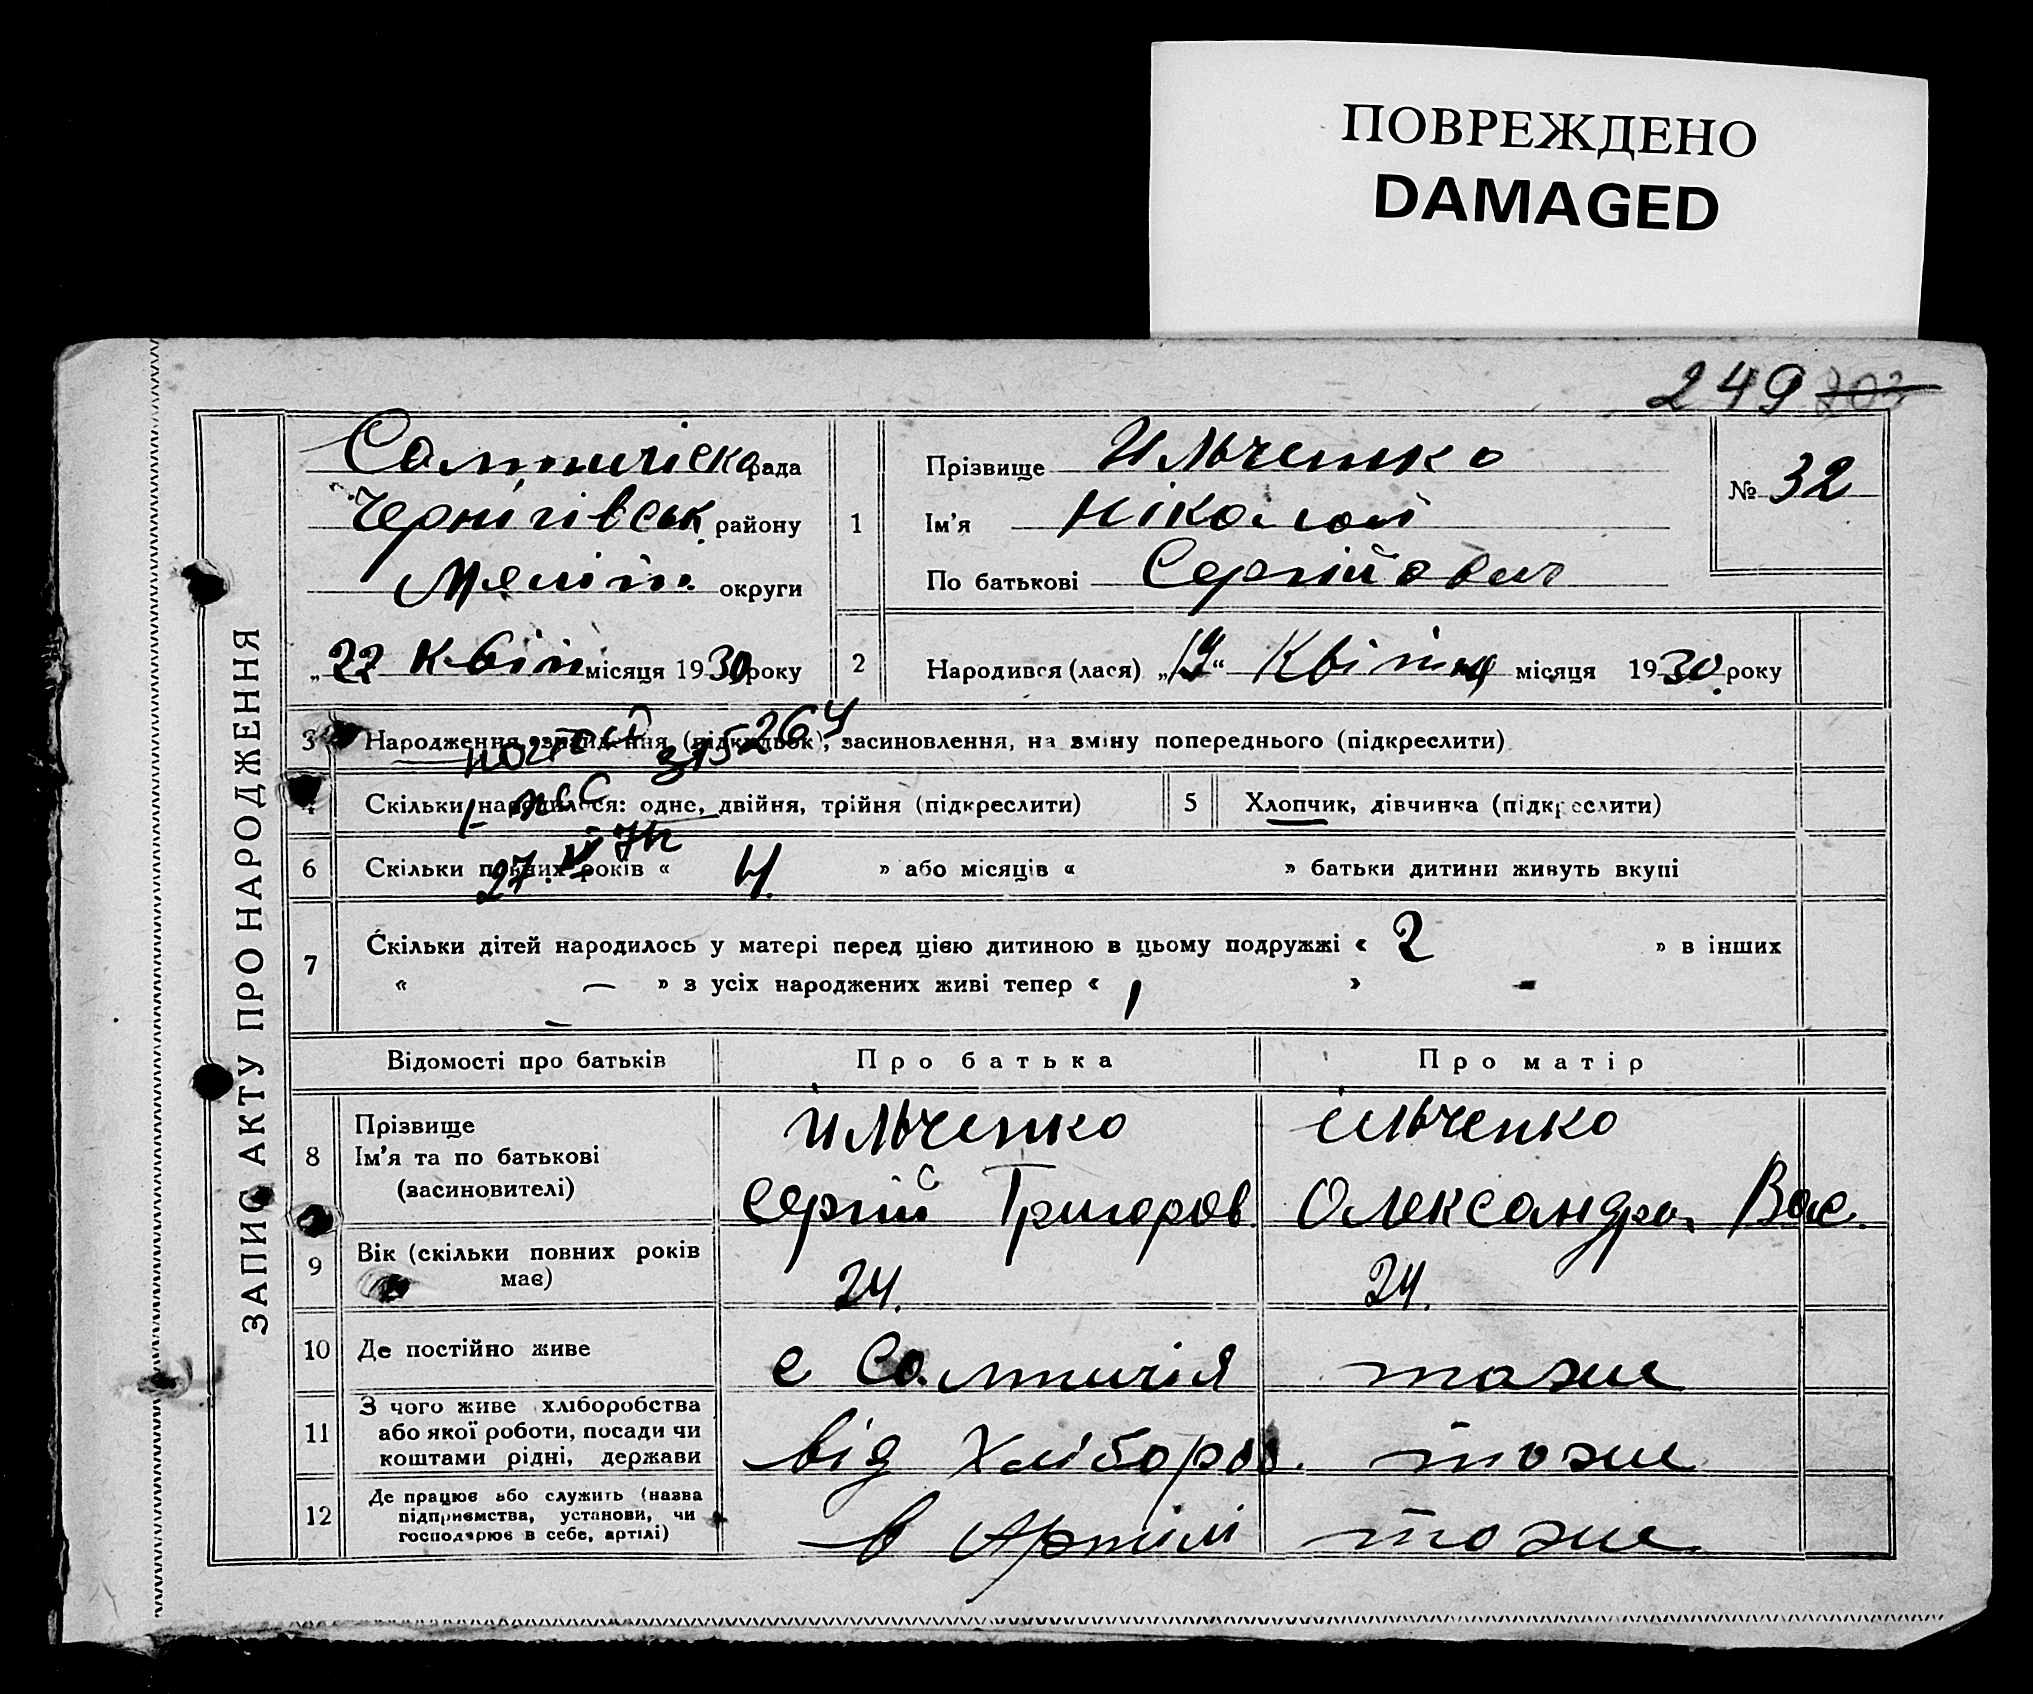 ПОВРЕЖДЕНО
DAMAGED
249 203
ЗАПИС АКТУ ПРО НАРОДЖЕННЯ
Салтичіска рада
Чернігівськ району
округи
„22 Квітн місяця 1930 року
1
Прізвище Ильченко
Ім'я Ніколай
По батькові Сергійович
№ 32
2 Народився (лася) „19“ Квітня місяця 1930 року
3 Народження, знайдення (підкидьок), засиновлення, на зміну попереднього (підкреслити)
4 Скільки народилося: одне, двійня, трійня (підкреслити)
5 Хлопчик, дівчинка (підкреслити)
6 Скільки повних років « 4. » або місяців « » батьки дитини живуть вкупі
7 Скільки дітей народилось у матері перед цією дитиною в цьому подружжі « 2 » в інших
« — » з усіх народжених живі тепер « 1 » -
Відомості про батьків Про батька Про матір
8 Прізвище
Ім'я та по батькові
(засиновителі)
Ильченко
Сергій Григоров.
Ильченко
Олександра Вас.
9 Вік (скільки повних років
має)
24. 24.
10 Де постійно живе с Салтичія тоже
11 З чого живе хліборобства
або якої роботи, посади чи
коштами рідні, держави
від Хлібороб. тоже
12 Де працює або служить (назва
підприємства, установи, чи
господарює в себе, артілі)
в Артілі тоже